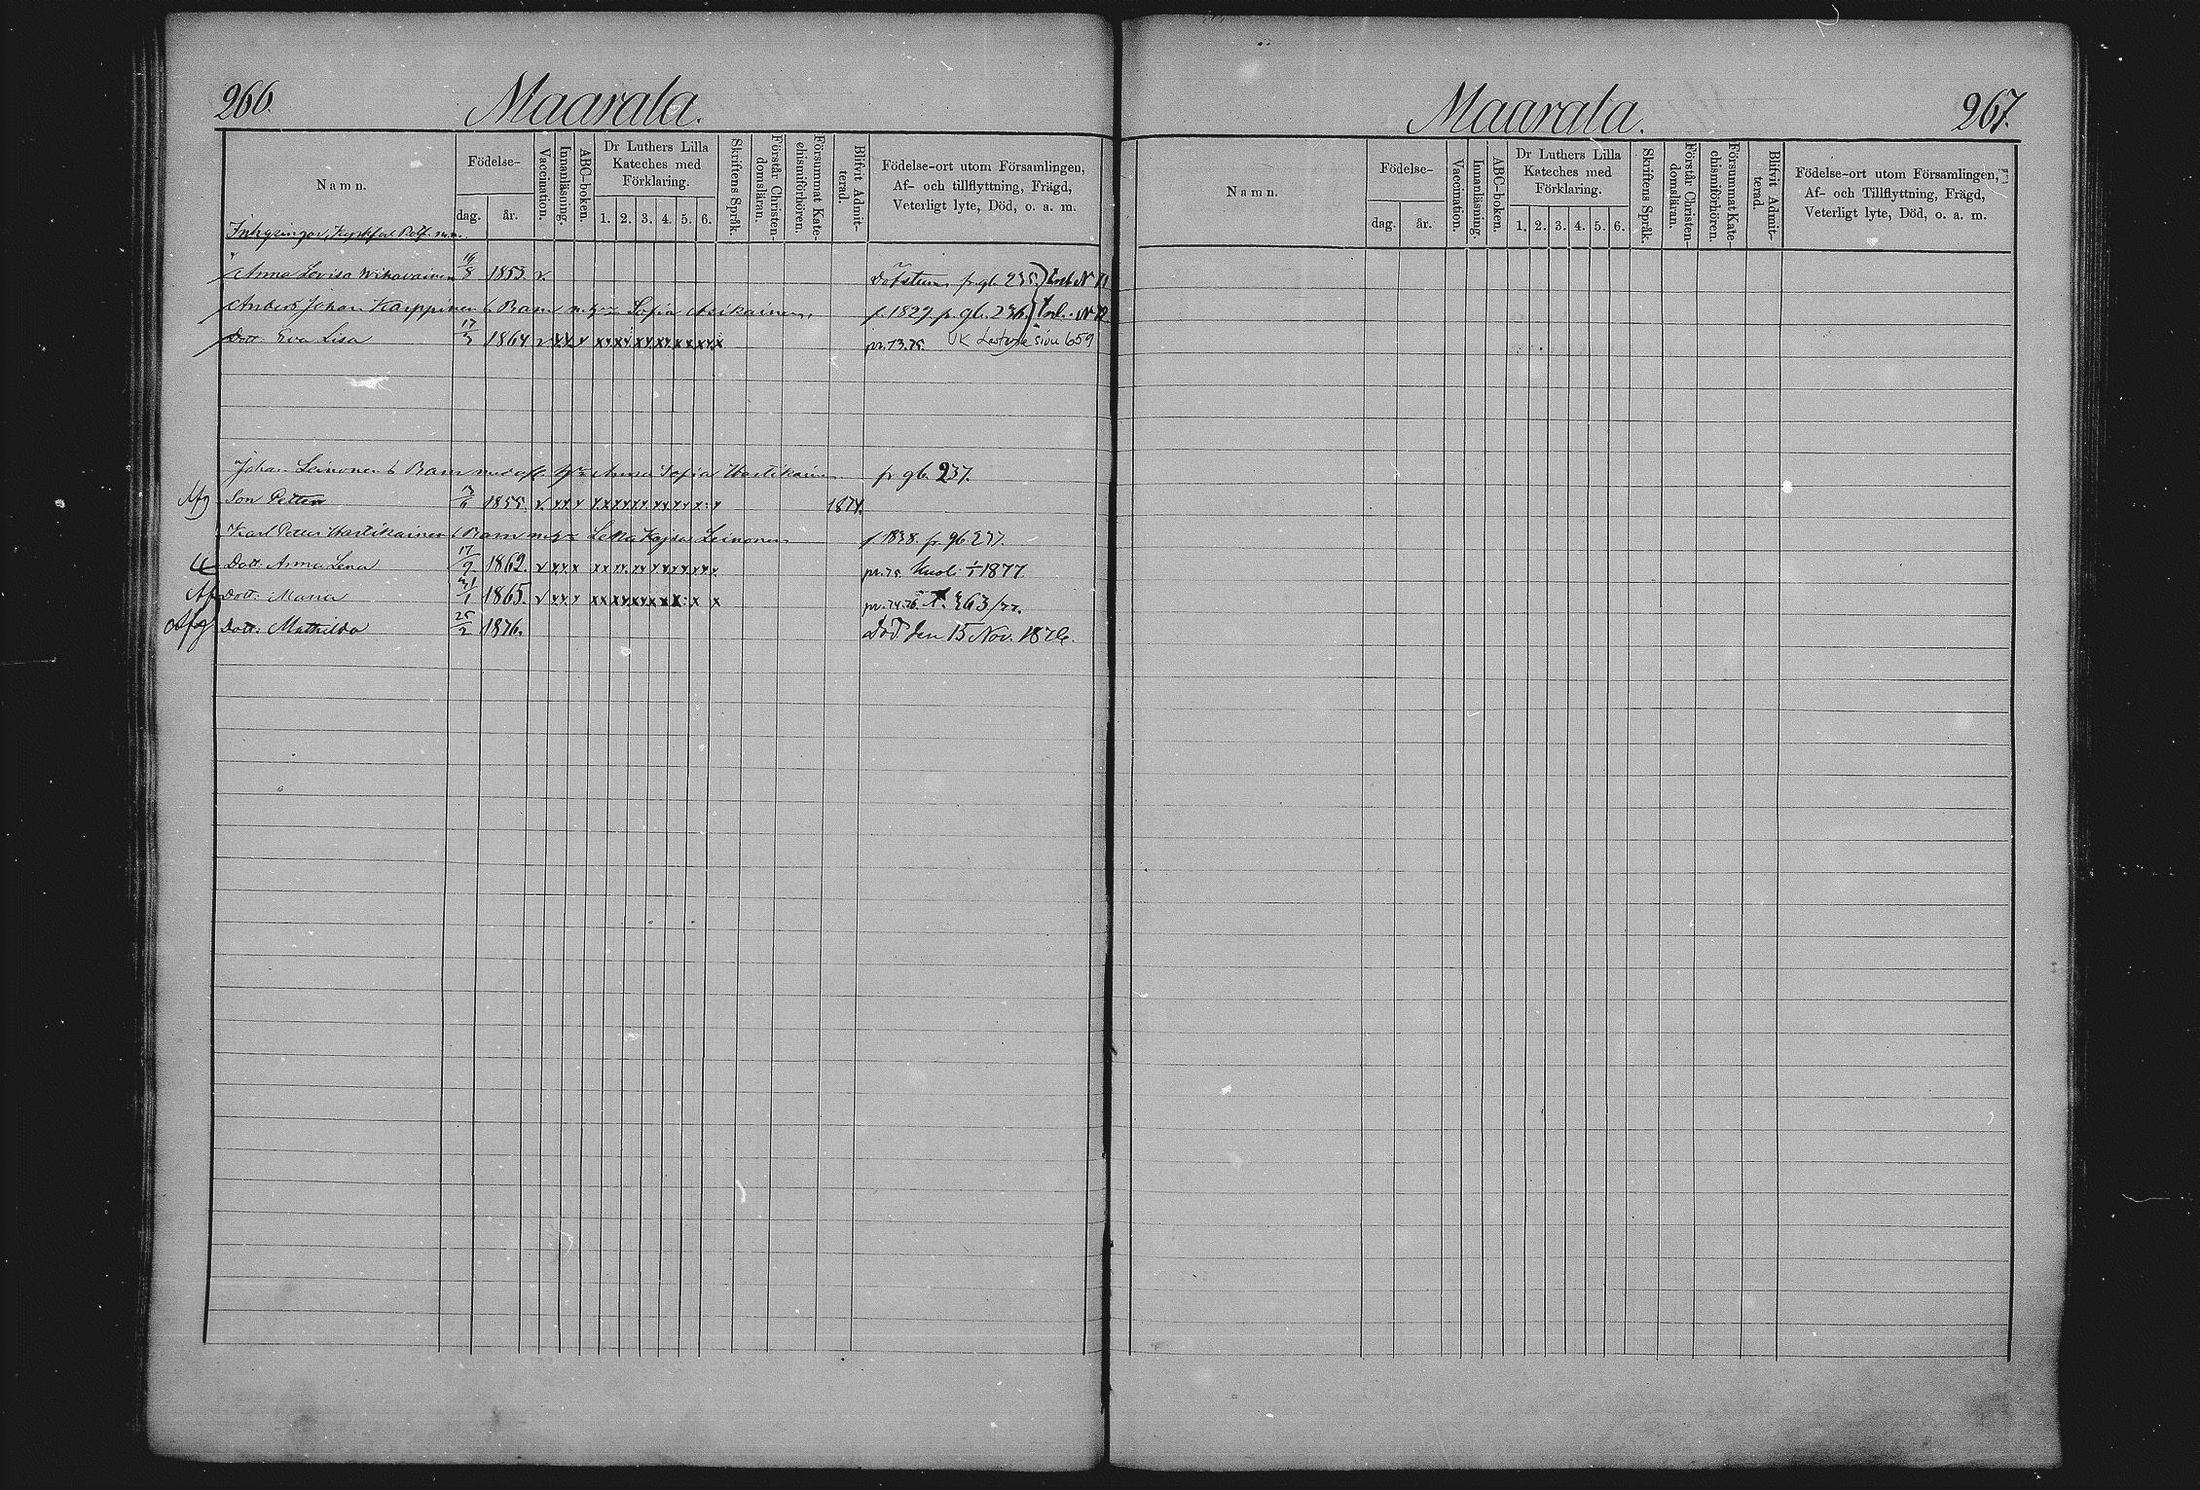 266.
Maarala.
Namn.
Födelse-
dag.
år.
Vaccination.
Innanläsning.
ABC-boken.
Dr Luthers Lilla
Kateches med
Förklaring.
1. 2. 3. 4. 5. 6.
Skriftens Språk.
Förstår Christen-
domsläran.
Försummat Kate-
chismiförhören.
Blifvit Admit-
terad.
Födelse-ort utom Församlingen,
Af- och tillflyttning, Frägd,
Veterligt lyte, Död, o. a. m.
Inhysingar,
Anna Lovisa 16/8 1853. v. Döfstum pr. gb. 235.
Anders Johan Karppinen Barn Sofia Asikainen f. 1829. p. gb. 236.
Dott. Eva Lisa 1864 v pr. 73.75. UK sivu 659
Johan Leinonen Barn med Anna Sofia Hartikain pr gb. 237.
Afg Son Petter 1855. v. 1874.
Karl Petter Hartikainen Barn Lena Kajsa Leinonen f 1838. p. gb. 237.
Dott. Anna Lena 17/9 1862. v pr. 75 Kuoli 1877
Af Dott. Maria 31/1 1865. v pr. 74.76
Afg Dott. Mathilda 25/2 1876. Död den 15 Nov. 1876.
Maarala.
267.
Namn.
Födelse-
dag.
år.
Vaccination.
Innanläsning.
ABC-boken.
Dr Luthers Lilla
Kateches med
Förklaring.
1. 2. 3. 4. 5. 6.
Skriftens Språk.
Förstår Christen-
domsläran.
Försummat Kate-
chismiförhören.
Blifvit Admit-
terad.
Födelse-ort utom Församlingen,
Af- och Tillflyttning, Frägd,
Veterligt lyte, Död, o. a. m.